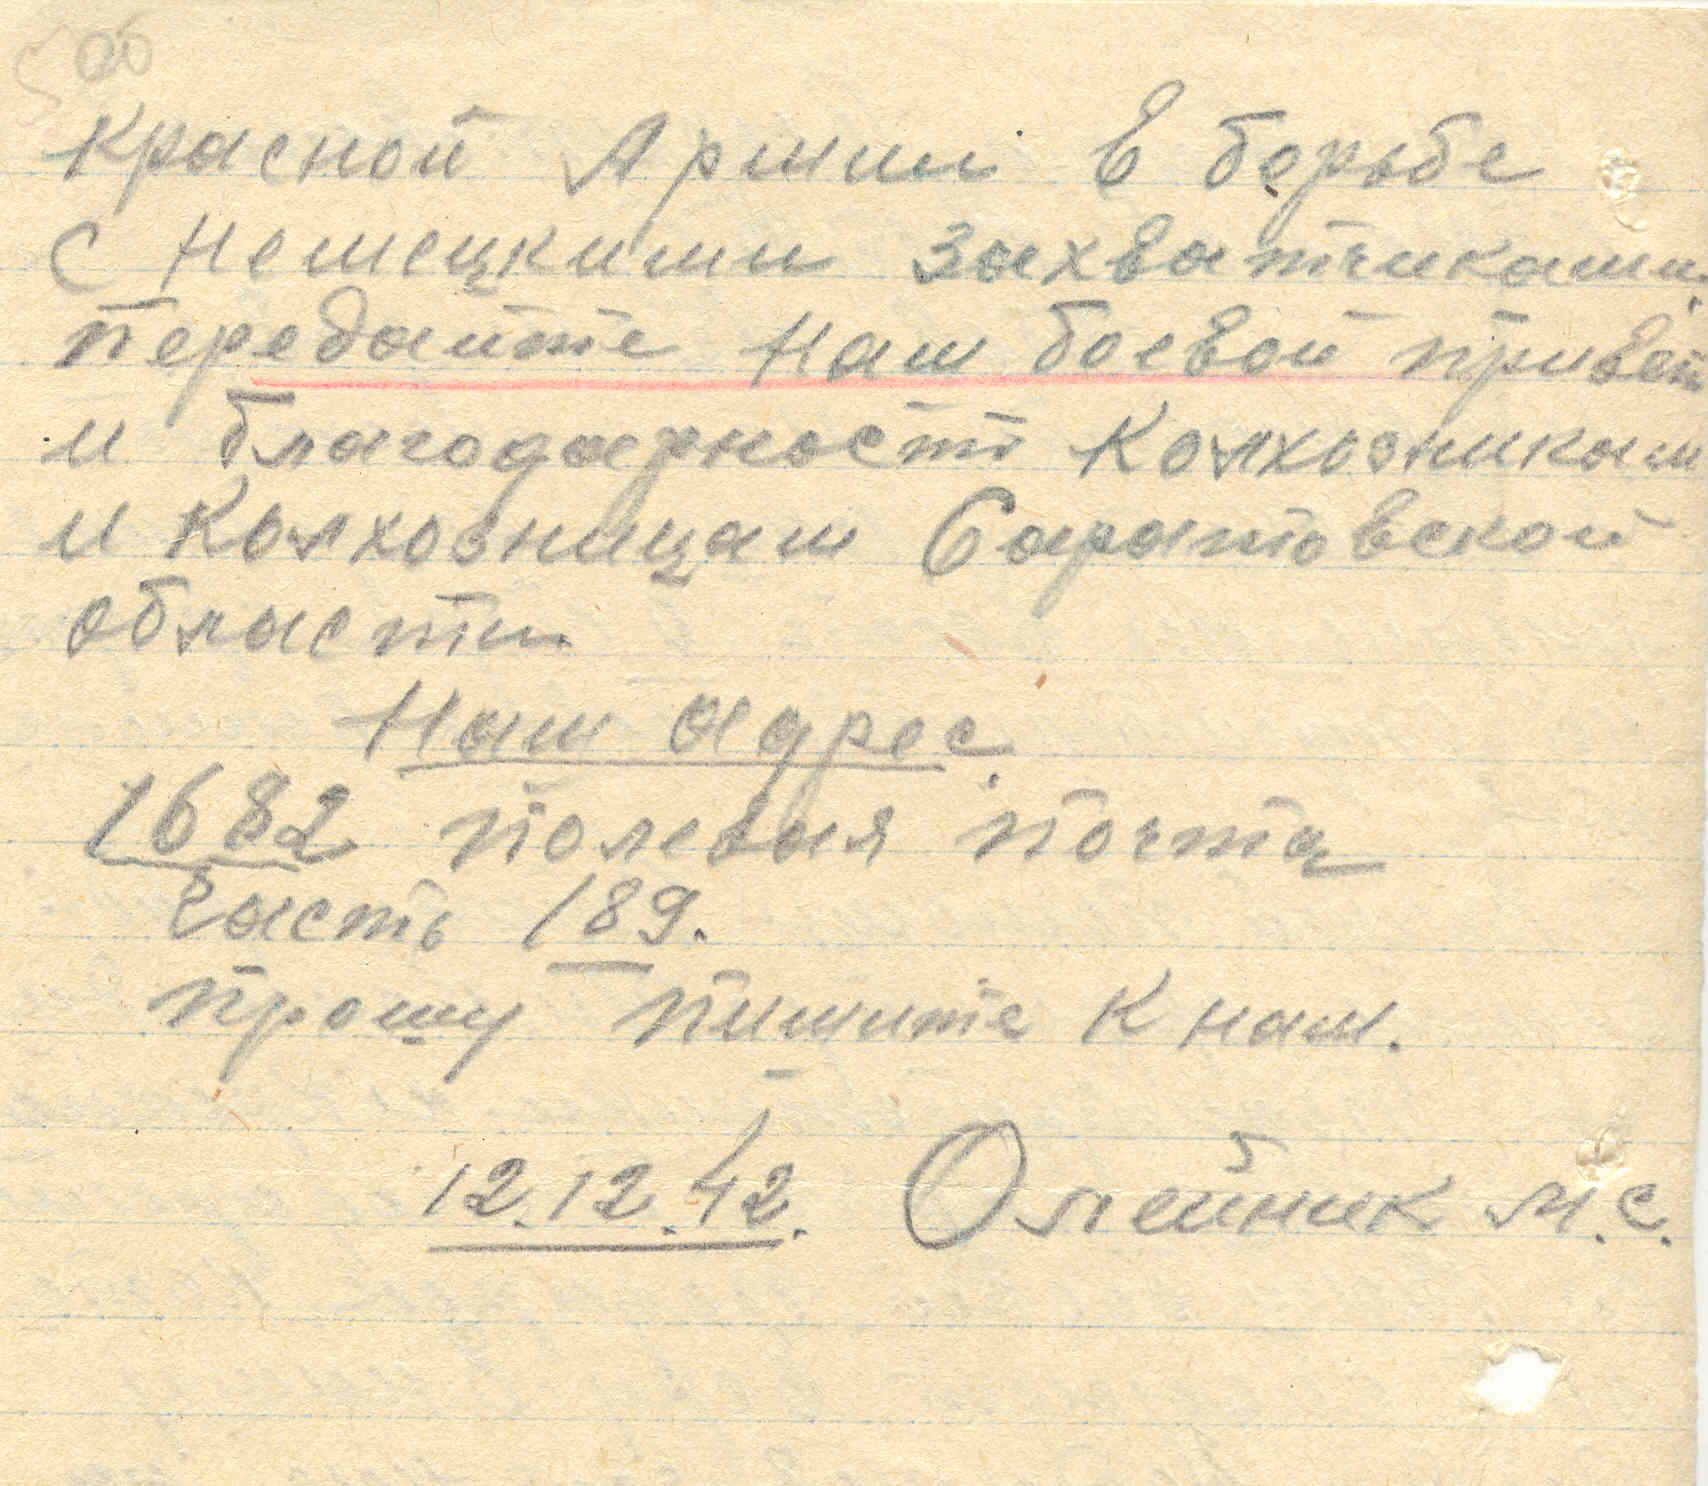 5об
Красной Армии в борьбе
с немецкими захватчиками.
Передайте наш боевой привет
и благодарность колхозникам
и колхозницам Саратовской
области.
Наш адрес.
1682 полевая почта
часть 189.
прошу пишите к нам.
12.12.42. Олейник М.С.